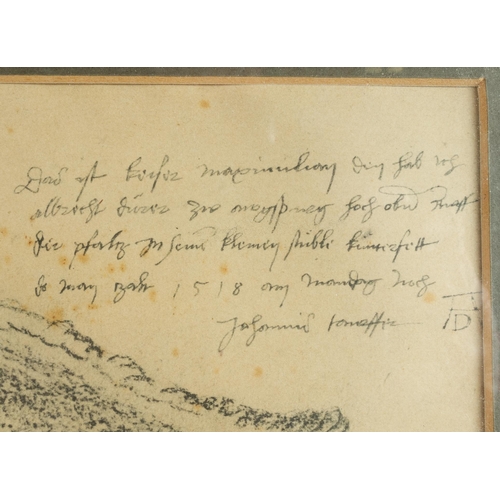 Das ist keiser maximilian den hab ich
albrecht dürer zw awgspurg hoch obn awff
der pfaltz in seine kleinen stüble kunterfett
do man zalt 1518 am mandag noch
Johannis tawffer AD